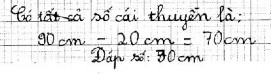 Có tất cả số cái thuyền là:
90 cm - 20 cm = 70 cm
Đáp số: 70 cm